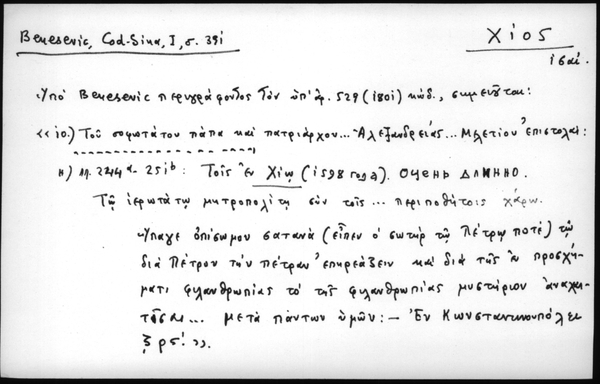 Benesevic, Cod-Sina, I, σ. 391
Χίος
ισαί.
Υπό Benesevic περιγράφοντος τον υπ' αρ. 529 (1801) κώδ., σημειούται:
<< 10.) Του σοφωτάτου πάπα και πατριάρχου... Αλεξανδρείας... Μελετίου επιστολαί:
η) 244 α - 251 b : Τοις εν Χίω (1598 года). Очень длинно.
Τω ιερωτάτω μητροπολίτη συν τοις... περιποθήτοις χάριν.
Ύπαγε οπίσωμου σατανά (είπεν ο σωτήρ τω Πέτρω ποτέ) τω
διά Πέτρον την πέτραν επηρεάζειν και διά της εν προσχή-
ματι φιλανθρωπίας το της φιλανθρωπίας μυστήριον αναχαι-
τίσαι... μετά πάντων υμών: – Έν Κωνσταντινουπόλει
ζρς΄. >>.